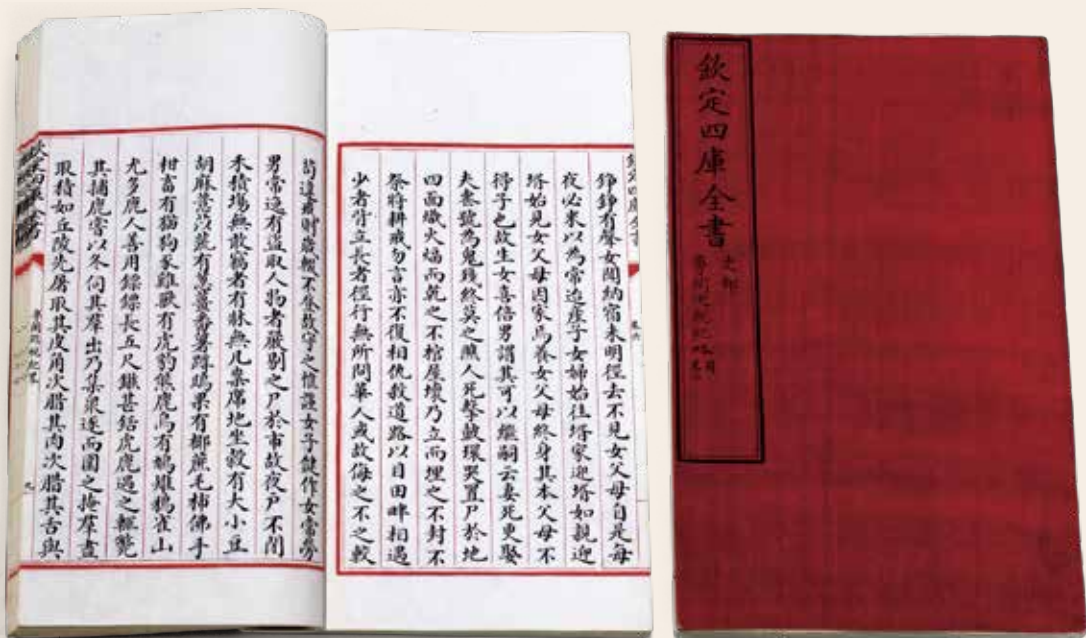 欽定四庫全書
史部
粵閩巡視紀略
欽定四庫全書
卷六
錚錚有聲女聞納宿未明徑去不見女父母自是每
夜必來以為常迨產子女婦始往壻家迎壻如親迎
壻始見女父母因家焉養女父母終身其本父母不
得子也故生女喜倍男謂其可以繼嗣云妻死更娶
夫喪號為鬼殘終莫之醮人死擊鼓環哭置尸於地
四面熾火煏而乾之不棺屋壞乃立而埋之不封不
祭將耕戒勿言亦不復相仇殺道路以目田畔相遇
少者背立長者徑行無所問華人或故侮之不之較
苟違時歲輒不登故守之惟謹女子健作女常勞
男常逸有盜取人物者嚴剔之尸於市故夜戶不閉
禾積場無敢竊者有牀無几案席地坐穀有大小豆
胡麻薏苡有蔥薑番薯蹲鴟果有椰蔗毛柿佛手
柑畜有猫狗豕雞獸有虎豹熊鹿鳥有鳩雉鵶雀山
尤多鹿人善用鏢鏢長五尺鐵甚銛虎鹿遇之輒斃
其捕鹿以冬伺其羣出乃集衆逐而圍之掩羣盡
取積如丘陵先屠取其皮角次腊其肉次腊其舌與
欽定四庫全書
粵閩巡視紀畧